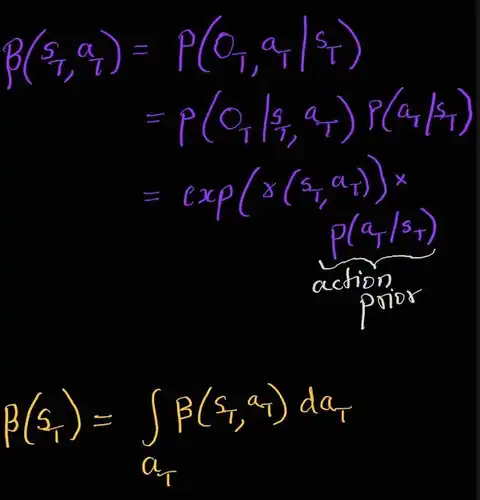 β(s_T, a_T) = p(O_T, a_T | s_T)
= p(O_T | s_T, a_T) p(a_T | s_T)
= exp(r(s_T, a_T)) ×
p(a_T | s_T)
action
prior
β(s_T) = ∫_{a_T} β(s_T, a_T) da_T